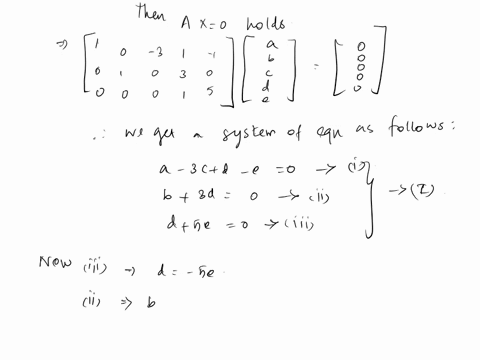 Then A x = 0 holds
⇒ [ 1 0 -3 1 -1 ] [ a ] = [ 0 ]
[ 0 1 0 3 0 ] [ b ] [ 0 ]
[ 0 0 0 1 5 ] [ c ] [ 0 ]
[ d ] [ 0 ]
[ e ]
∴ we get a system of eqn as follows:
a - 3c + d - e = 0 → (i)
b + 3d = 0 → (ii) } → (I)
d + 5e = 0 → (iii)
Now (iii) → d = -5e.
(ii) ⇒ b